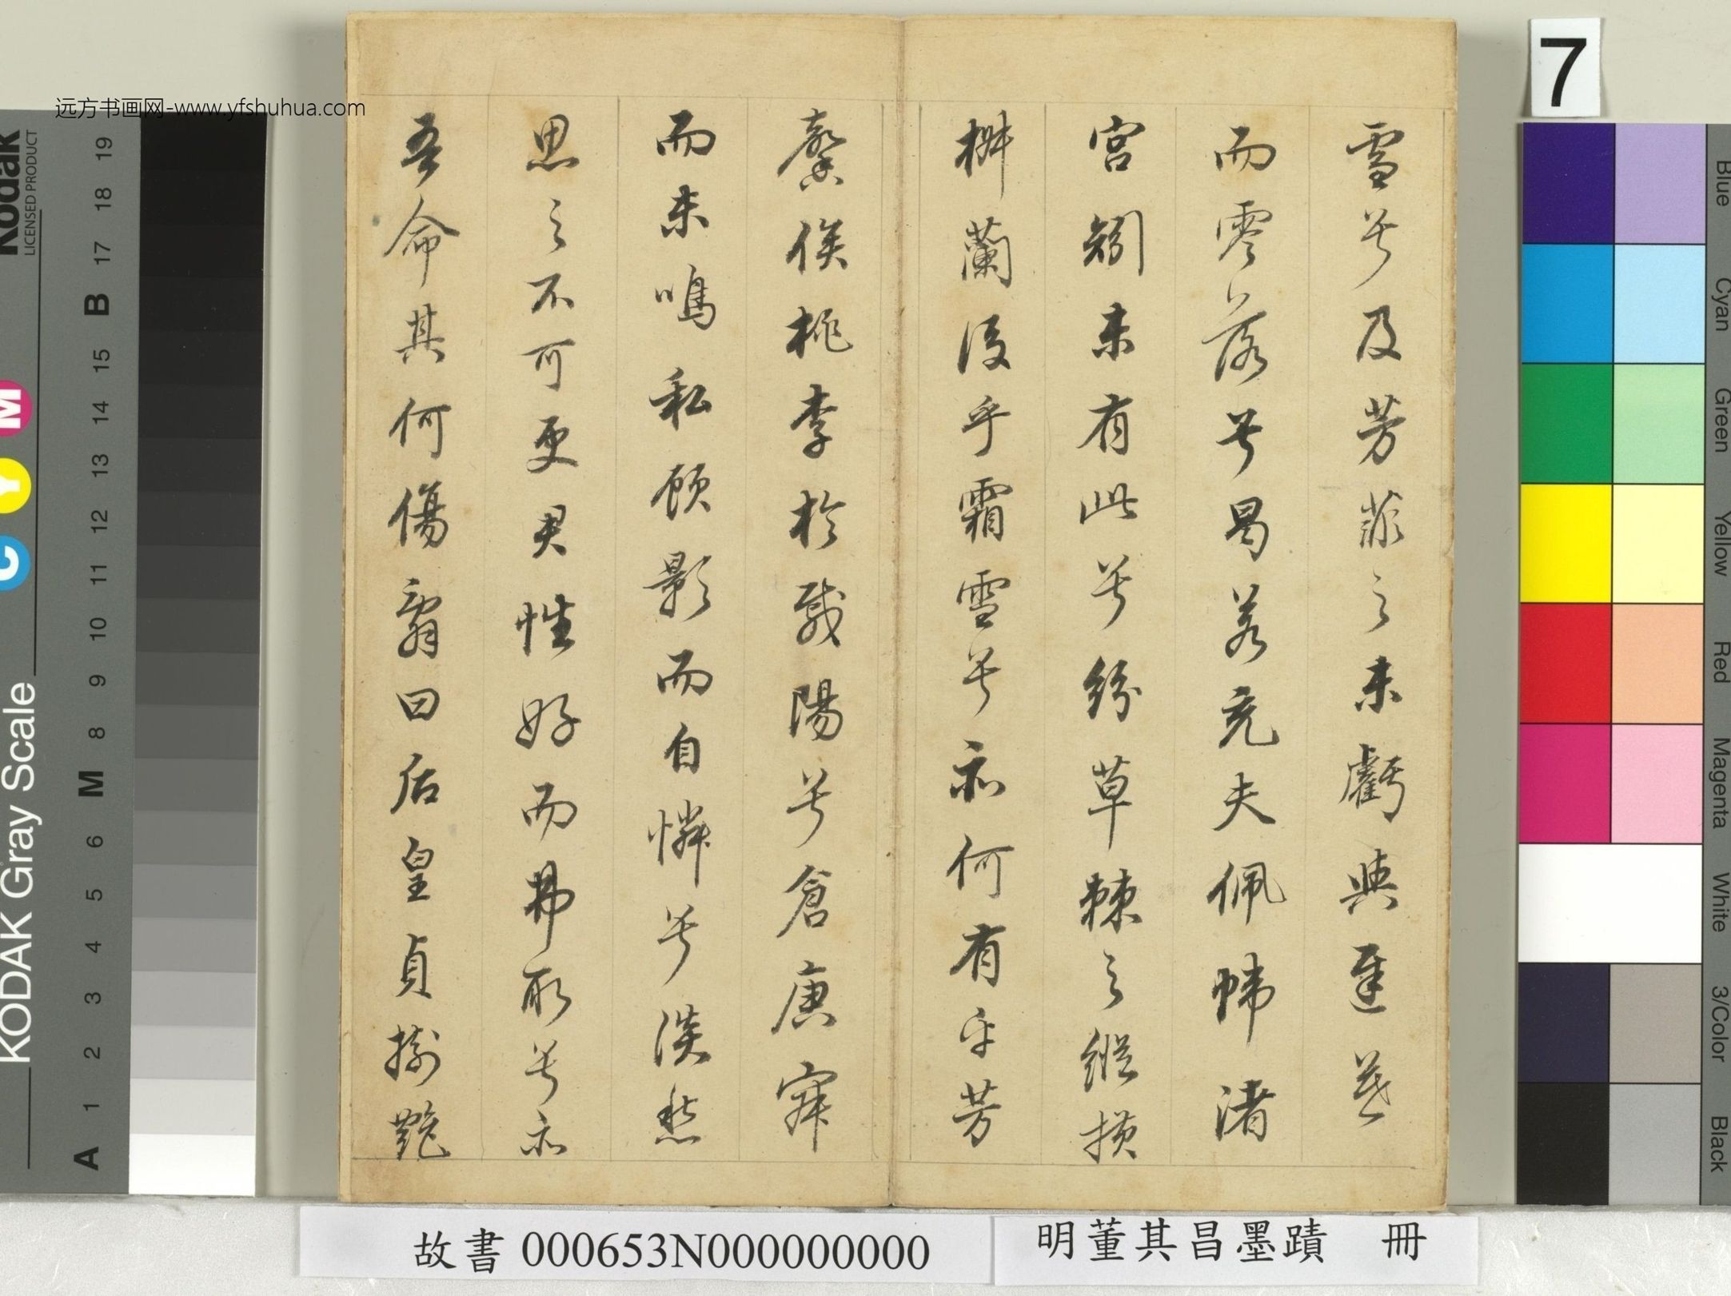 雪兮及芳菲之未虧與遲暮
而零落兮曷若充夫佩幃渚
宮矧未有此兮紛草棘之縱橫
椒蘭後乎霜雪兮亦何有乎芳
馨俟桃李於載陽兮倉庚寂
而未鳴私顧影而自憐兮淡愁
思之不可更君性好而弗取兮亦
吾命其何傷辭曰后皇貞樹艷
远方书画网-www.yfshuhua.com
7
Kodak
LICENSED PRODUCT
KODAK Gray Scale
C Y M
A 1 2 3 4 5 6 M 8 9 10 11 12 13 14 15 B 17 18 19
Blue
Cyan
Green
Yellow
Red
Magenta
White
3/Color
Black
故書 000653N000000000
明董其昌墨蹟 冊